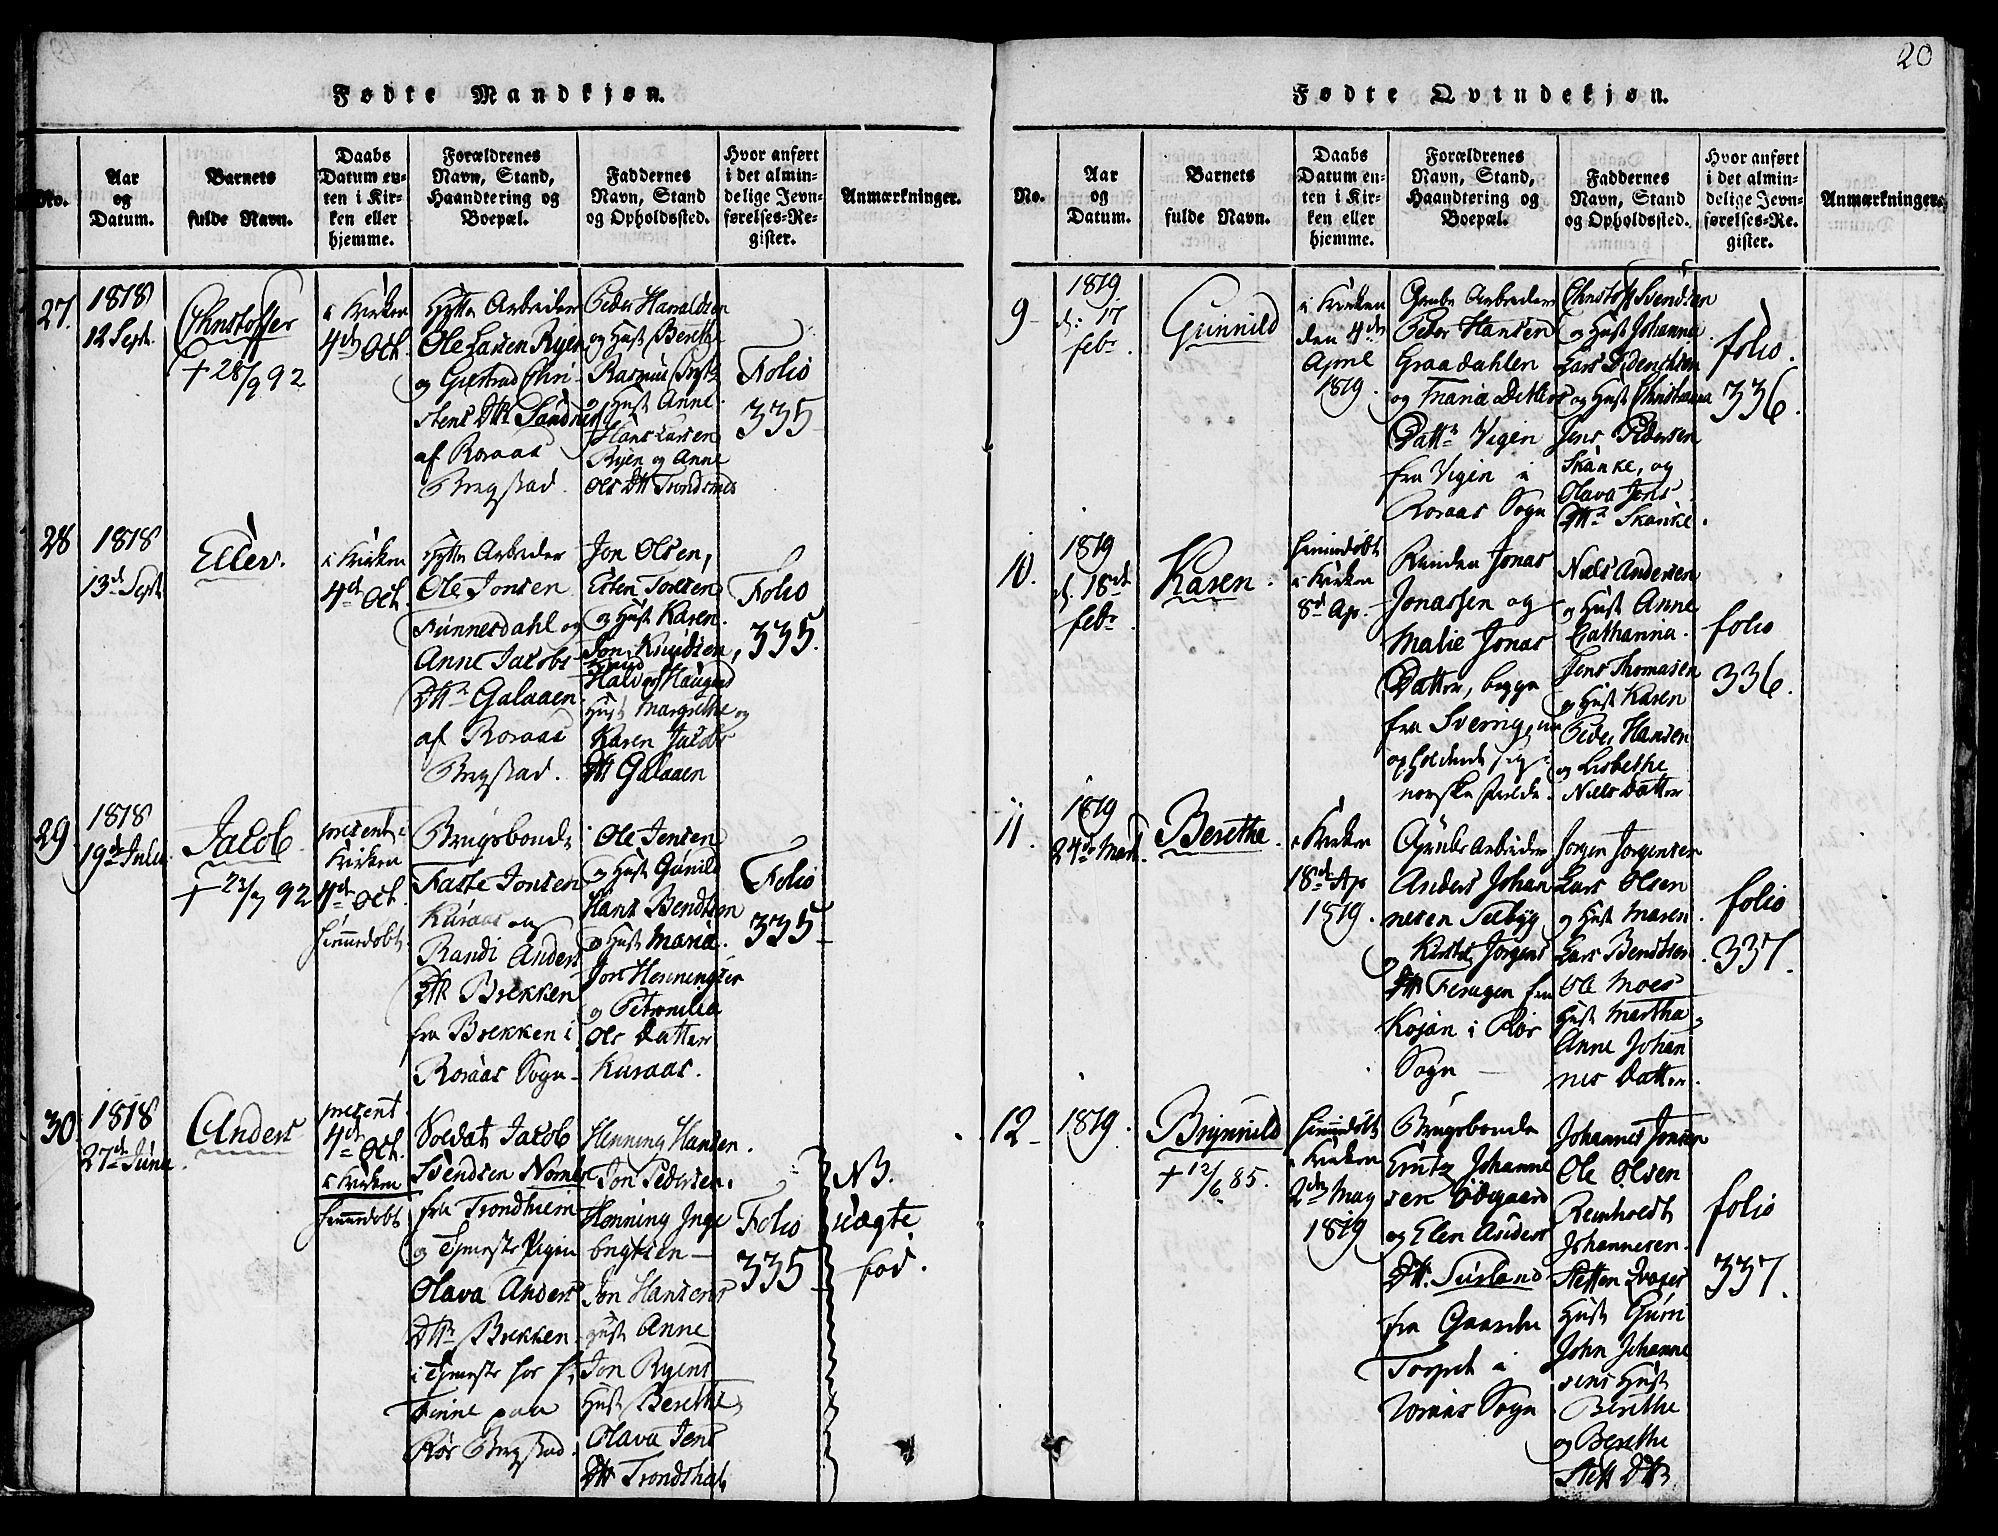 20
Fødte Mandkjøn.
No.
Aar
og
Datum.
Barnets
fulde Navn.
Daabs
Datum en-
ten i Kir-
ken eller
hjemme.
Forældrenes
Navn, Stand,
Haandtering og
Boepæl.
Faddernes
Navn, Stand
og Opholdssted.
Hvor anført
i det almin-
delige Jevn-
førelses-Re-
gister.
Anmærkninger.
27.
1818
12 Sept.
Christoffer
+ 28/9 92
i Kirken
4de Oct.
Hytte Arbeider
Ole Larsen Ryen
og Giertrud Chri-
stens Dtr Sandnes
af Roraas
Bergstad.
Peder Haraldsen
og Hust Berethe
Rasmus
og Hust Anne
Hans Larsen
Ryen og Anne
Ols Dtr Trondsnes
Folio
335
28
1818
13de Sept
Elles.
i Kirken
4de Oct.
Hytte Arbeider
Ole Jonsen
Sunnesdahl og
Anne Jacobs
Dtr Galaaen
af Roraas
Bergstad.
Jon Olsen,
Esten Tolsen
og Hust Karen.
Jon Knudsen,
Knud
Halvor Haugens
Hust Margrethe og
Karen Jacobs
Dtr Galaaen
Folio
335.
29
1818
19de Julii
Jacob
+ 23/7 92
present i
Kirken
4de Oct.
hiemedøbt.
Brugsbonde
Faste Jonsen
Kuraas og
Randi Anders
Dtr Brekken
fra Brekken i
Roraas Sogn
Ole Jensen
og Hust Gunild
Hans Bendtsen
og Hust Maria.
Jon Henningsen
og Petronilia
Ols Datter
Kuraas.
Folio
335
30
1818
27de Juni
Anders
present
4de Oct.
i Kirken
hiemedøbt
Soldat Jacob
Svendsen
fra Trondhiem
og Tieneste Pigen
Olava Anders
Dtr Brekken
i Tieneste hos Hr
Finne paa
Rør Bergstad.
Henning Hansen.
Jon Pedersen.
Henning Inge
brigtsen
Jon Hansens
Hust Anne
Jon Ryens
Hust Berethe
Olava Jens
Dtr Trondshal
Folio
335
NB.
uægte
fød.
Fødte Qvindekjøn.
No.
Aar
og
Datum.
Barnets
fulde Navn.
Daabs
Datum en-
ten i Kir-
ken eller
hjemme.
Forældrenes
Navn, Stand,
Haandtering og
Boepæl.
Faddernes
Navn, Stand
og Opholdssted.
Hvor anført
i det almin-
delige Jevn-
førelses-Re-
gister.
Anmærkninger.
9
1819
d: 17
febr.
Gunnild
i Kirken
den 4de
April
1819.
Grube Arbeider
Peder Hansen
Graadahlen
og Maria Ditlefs
Dattr Vigen
fra Vigen i
Roraas Sogn
Christoff Svendsen
og Hust Johanna
Lars Didrichsen
og Hust Christiana
Jens Pedersen
Skanke, og
Olava Jens
Dtr Skanke.
folio
336.
10.
1819
d. 18de
febr.
Karen.
hiemdøbt
i Kirken
8de Ap.
Jonas
Jonassen og
Malie Jonas
Datter, begge
fra Sverrig, nu
opholdende sig i
norske
Niels Andersen
og Hust Anne
Catharina.
Jens Thomasen
og Hust Karen
Peder Hansen
og Lisbethe
Niels Datter
folio
336.
11.
1819
24de Mart.
Berethe.
i Kirken
18de Ap
1819.
Grube Arbeider
Anders Johan
nesen Selbyg
og Kirsti Jorgens
Dtr Feragen fra
Kojan i Rør
Sogn
Jorgen Jorgensen
Lars Olsen
og Hust Maren.
Lars Bendtsen
Ole Moes
Hust Martha
Anne Johan
nes Datter.
folio
337.
12
1819.
Brynnild
+ 12/6 85.
hiemdøbt
i Kirken
2den May
1819
Brugsbonde
Erntz Johanne
sen Ødegaard
og Elen Anders
Dtr. Susland
fra Gaarden
Torpet i
Roraas Sogn
Johannes Jonsen
Ole Olsen
Reinholdt
Johannesen.
Steffen Ivaers
Hust Guri
John Johanne
sens Hust
Berethe
og Berethe
Steff Dtr
folio
337.